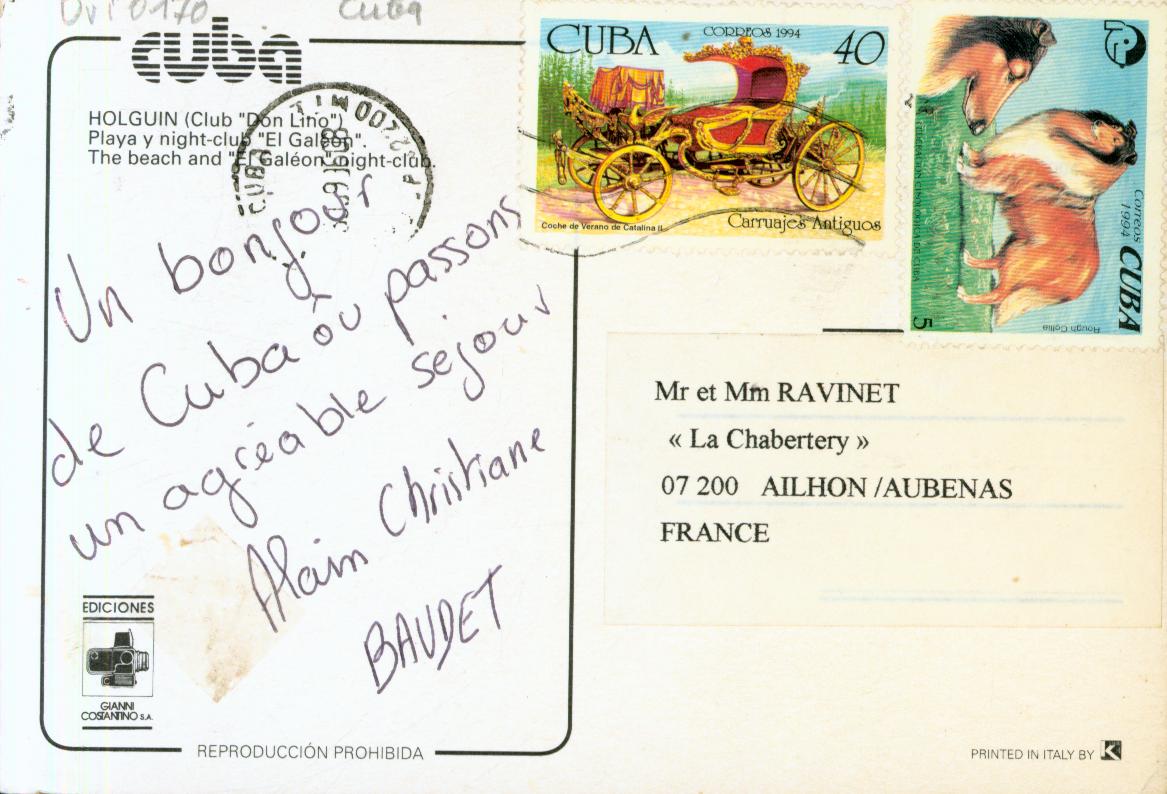 Cuba
cuba
HOLGUIN (Club "Don Lino")
Playa y night-club "El Galeón".
The beach and "El Galéon" night-club.
CUBA
Un bonjour
de Cuba où passons
un agréable séjour
Alain Christiane
BAUDET
EDICIONES
GIANNI
COSTANTINO S.A.
REPRODUCCIÓN PROHIBIDA
CUBA
CORREOS 1994
40
Coche de Verano de Catalina II.
Carruajes Antiguos
FEDERACION CINOLOGICA DE CUBA
Correos
1994
CUBA
5
Rough Collie
Mr et Mm RAVINET
« La Chabertery »
07 200 AILHON /AUBENAS
FRANCE
PRINTED IN ITALY BY K